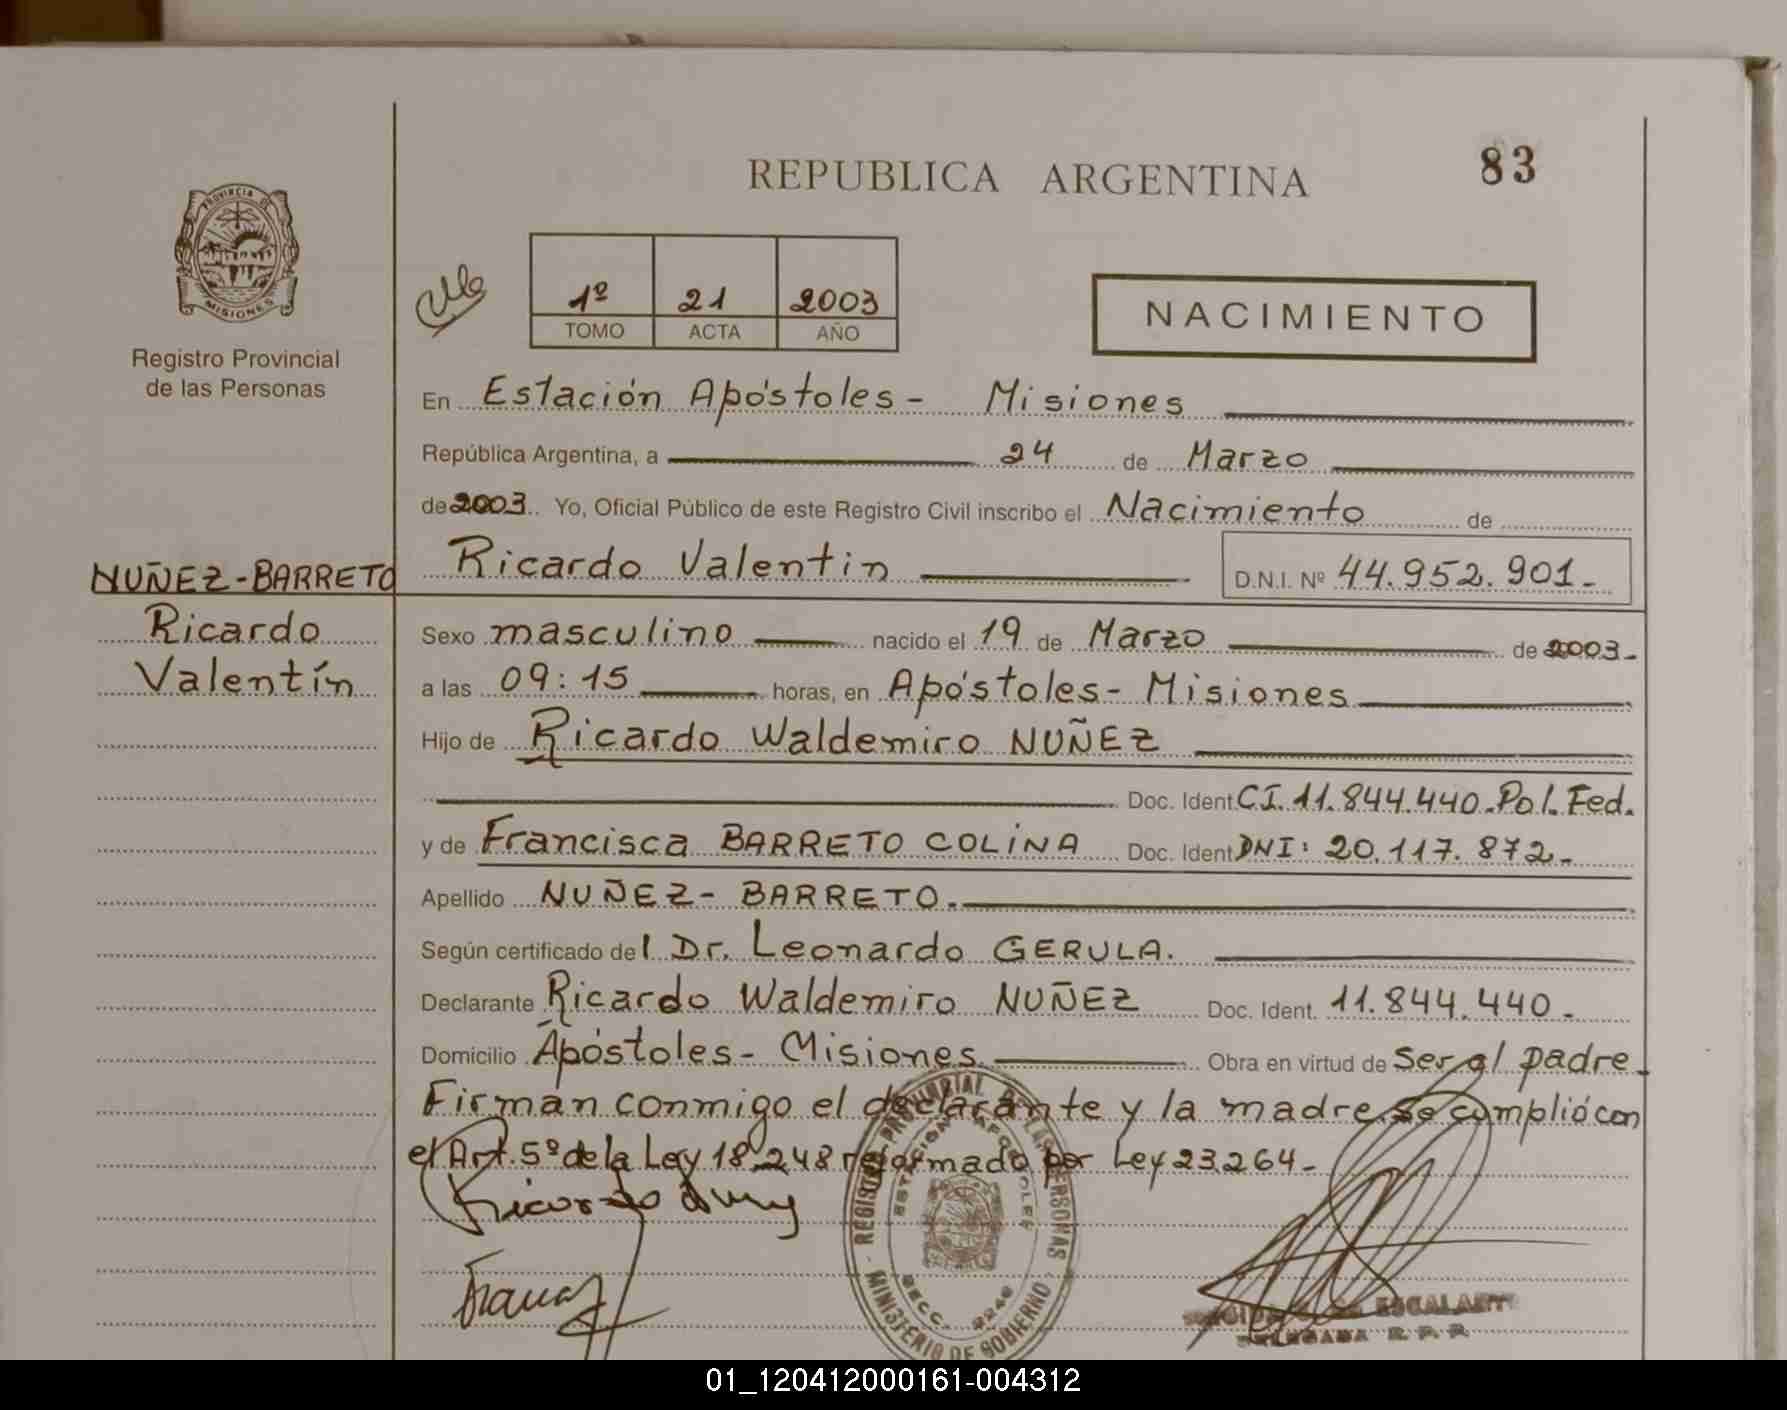 REPUBLICA ARGENTINA
83
PROVINCIA DE
MISIONES
Registro Provincial
de las Personas
1º 21 2003
TOMO ACTA AÑO
NACIMIENTO
En Estación Apóstoles - Misiones
República Argentina, a 24 de Marzo
de 2003. Yo, Oficial Público de este Registro Civil inscribo el Nacimiento de
NUÑEZ-BARRETO
Ricardo
Valentín
Ricardo Valentin D.N.I. Nº 44.952.901-
Sexo masculino nacido el 19 de Marzo de 2003-
a las 09:15 horas, en Apóstoles- Misiones
Hijo de Ricardo Waldemiro NUÑEZ
Doc. Ident. CI. 11.844.440.Pol. Fed.
y de Francisca BARRETO COLINA Doc. Ident. DNI: 20.117.872-
Apellido NUÑEZ- BARRETO.
Según certificado del Dr. Leonardo GERULA.
Declarante Ricardo Waldemiro NUÑEZ Doc. Ident. 11.844.440-
Domicilio Apóstoles- Misiones. Obra en virtud de Ser el padre-
Firman conmigo el declarante y la madre. Se cumplió con
el Art. 5º de la Ley 18.248 reformado por Ley 23.264-
REGISTRO PROVINCIAL DE LAS PERSONAS
ESTACION APOSTOLES
SECC. 2246
MINISTERIO DE GOBIERNO
ESCALANTE
DELEGADA R. P. P.
01_120412000161-004312